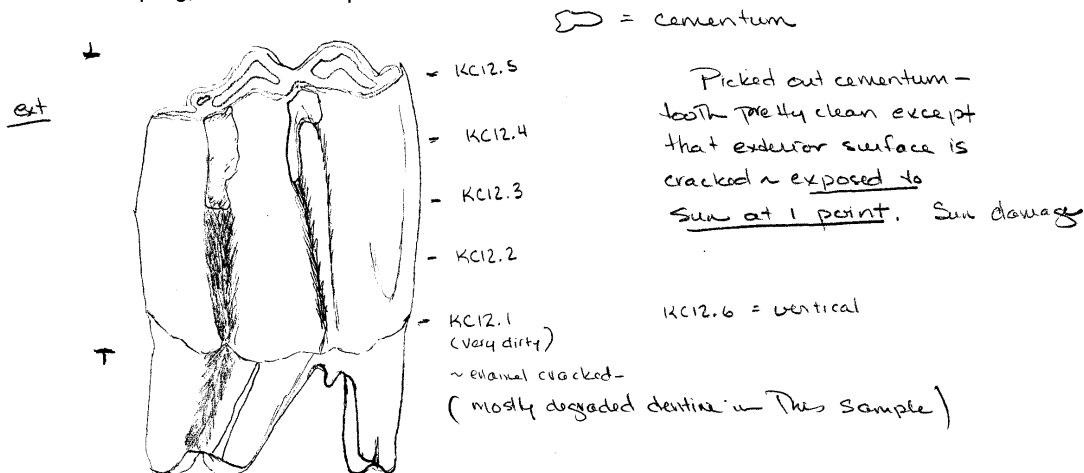 = cementum
ext
- KC12.5
- KC12.4
- KC12.3
- KC12.2
- KC12.1
(very dirty)
~ enamel cracked-
(mostly degraded dentine in This sample)
Picked out cementum -
tooth pretty clean except
that exterior surface is
cracked ~ exposed to
sun at 1 point. Sun damage
KC12.6 = vertical